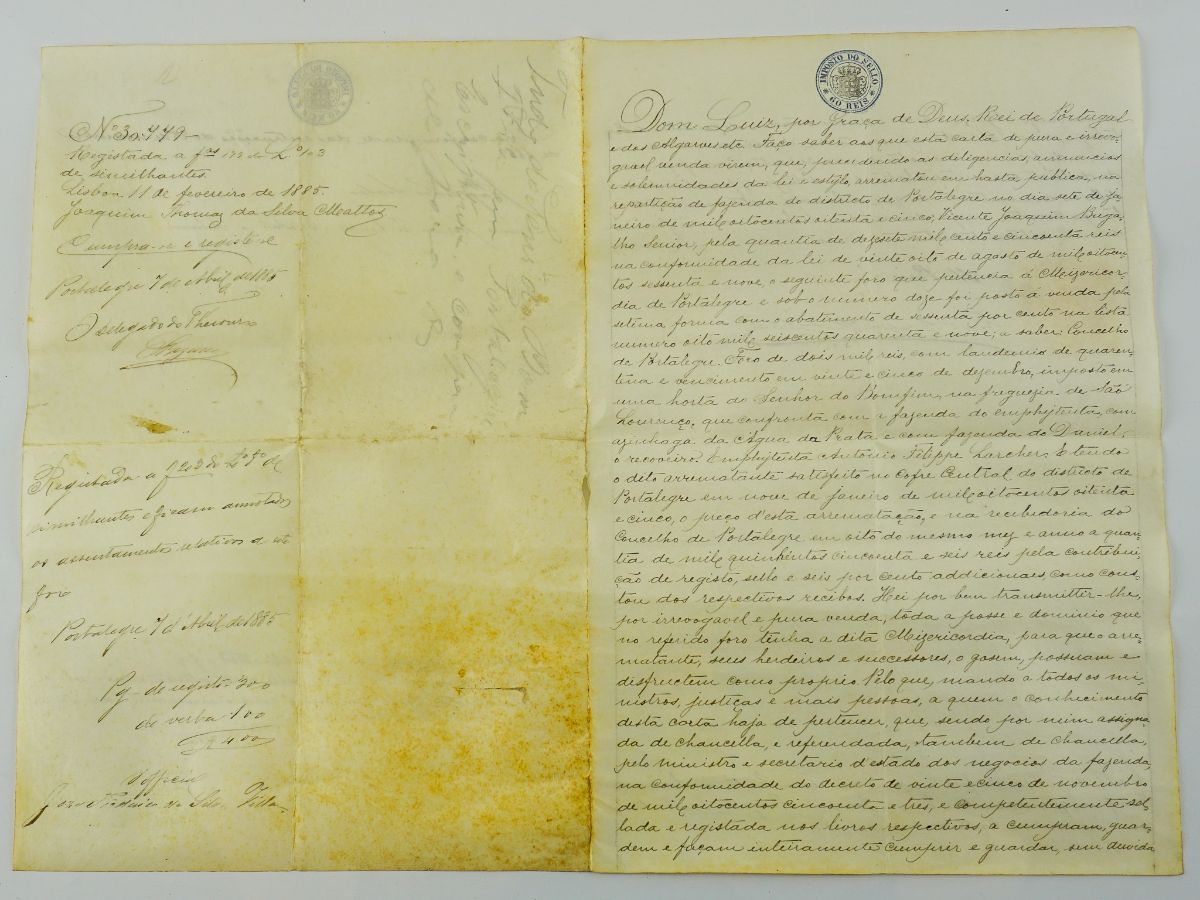 Nº 30.779
Registada a fls 133 do Lº 103
de similhantes
Lisboa 11 de fevereiro de 1885.
Joaquim Thomaz da Silva Mattoz
Cumpra-se e registe-se
Portalegre 7 de Abril de 1885
O delegado do Thesouro
Registada a f 203 do Lº 5º de
similhantes e ficam annotados
os assentamentos relativos a este
foro
Portalegre, 7 de Abril de 1885
Pg - de registo - 300
de verba - 100
400
O official
da Silva
IMPOSTO DO SELLO
60 REIS
Dom Luiz, por Graça de Deus, Rei de Portugal
e dos Algarves etc. Faço saber aos que esta carta de pura e irrevo-
gavel venda virem, que, precedendo as deligencias, annuncios
e solemnidades da lei e estylo, arrematou em hasta publica, na
repartição de fazenda do districto de Portalegre no dia sete de ja-
neiro de mil oitocentos oitenta e cinco, Vicente Joaquim Briga-
lho Senior, pela quantia de dezesete mil cento e cincoenta reis
na conformidade da lei de vinte oito de agosto de mil oitocen-
tos sessenta e nove, o seguinte foro que pertencia á Mizericor-
dia de Portalegre e sob o numero doze foi posto á venda pela
setima forma com o abatimento de sessenta por cento na lista
numero oito mil seiscentos quarenta e nove; a saber: Concelho
de Portalegre. Foro de dois mil reis, com laudemio de quaren-
tena e vencimento em vinte e cinco de dezembro, imposto em
uma horta do Senhor do Bomfim, na freguezia de São
Lourenço, que confronta com a fazenda do emphyteuta, com
azinhaga da Agua da Prata e com fazenda do Daniel,
o recoveiro. Emphyteuta Antonio Filippe Larcher. E tendo
o dito arrematante satisfeito no Cofre Central do districto de
Portalegre em nove de janeiro de mil oitocentos oitenta
e cinco, o preço d'esta arrematação, e na recebedoria do
Concelho de Portalegre em oito do mesmo mez e anno a quan-
tia de mil quinhentos cincoenta e seis reis pela contribui-
ção de registo, sello e seis por cento addicionaes, como cons-
tou dos respectivos recibos. Hei por bem transmitter-lhe,
por irrevogavel e pura venda, toda a posse e dominio que
no referido foro tenha a dita Mizericordia, para que o arre-
matante, seus herdeiros e successores, o gosem, possuam e
disfructem como proprio Pelo que, mando a todos os mi-
nistros, justiças e mais pessoas, a quem o conhecimento
desta carta haja de pertencer, que, sendo por mim assigna-
da de chancella, e referendada, tambem de chancella,
pelo ministro e secretario d'estado dos negocios da fazenda,
na conformidade do decreto de vinte e cinco de novembro
de mil oitocentos cincoenta e tres, e competentemente sel-
lada e registada nos livros respectivos, a cumpram, guar-
dem e façam inteiramente cumprir e guardar, sem duvida